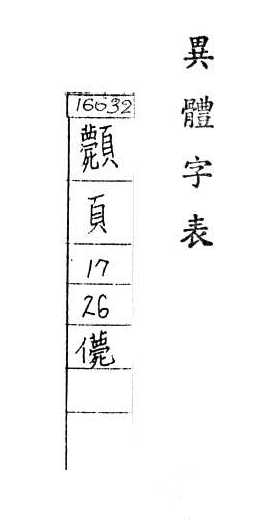 異體字表
16632
頁
17
26